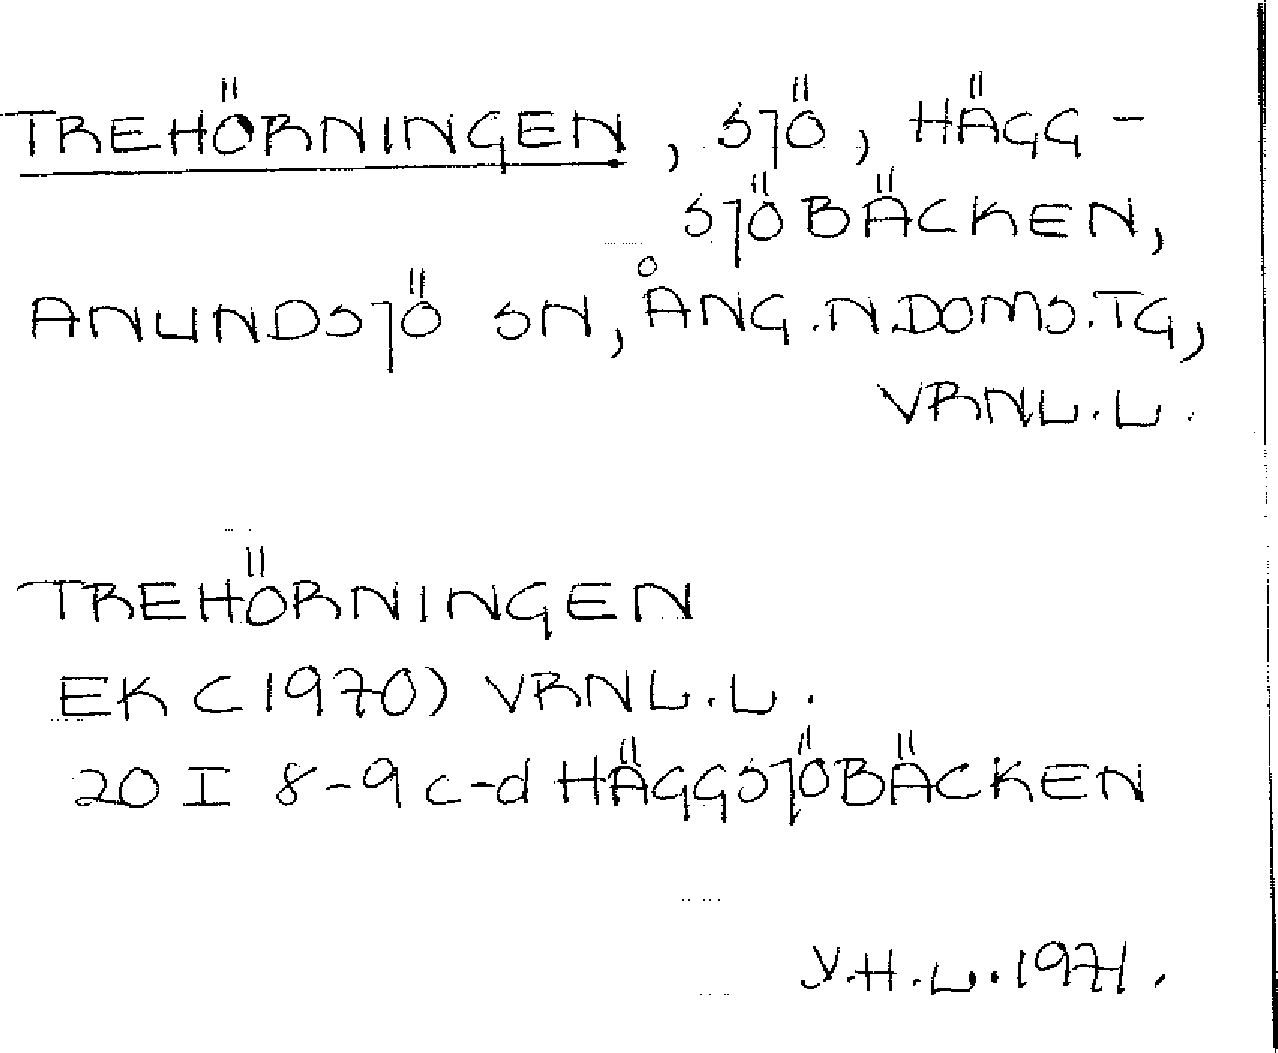 TREHÖRNINGEN, SJÖ, HÄGG-
SJÖBÄCKEN,
ANUNDSJÖ SN, ÅNG.N.DOMS.TG,
VRNL.L.
TREHÖRNINGEN
EK (1970) VRNL.L.
20 I 8-9 c-d HÄGGSJÖBÄCKEN
Y.H.L. 1971.